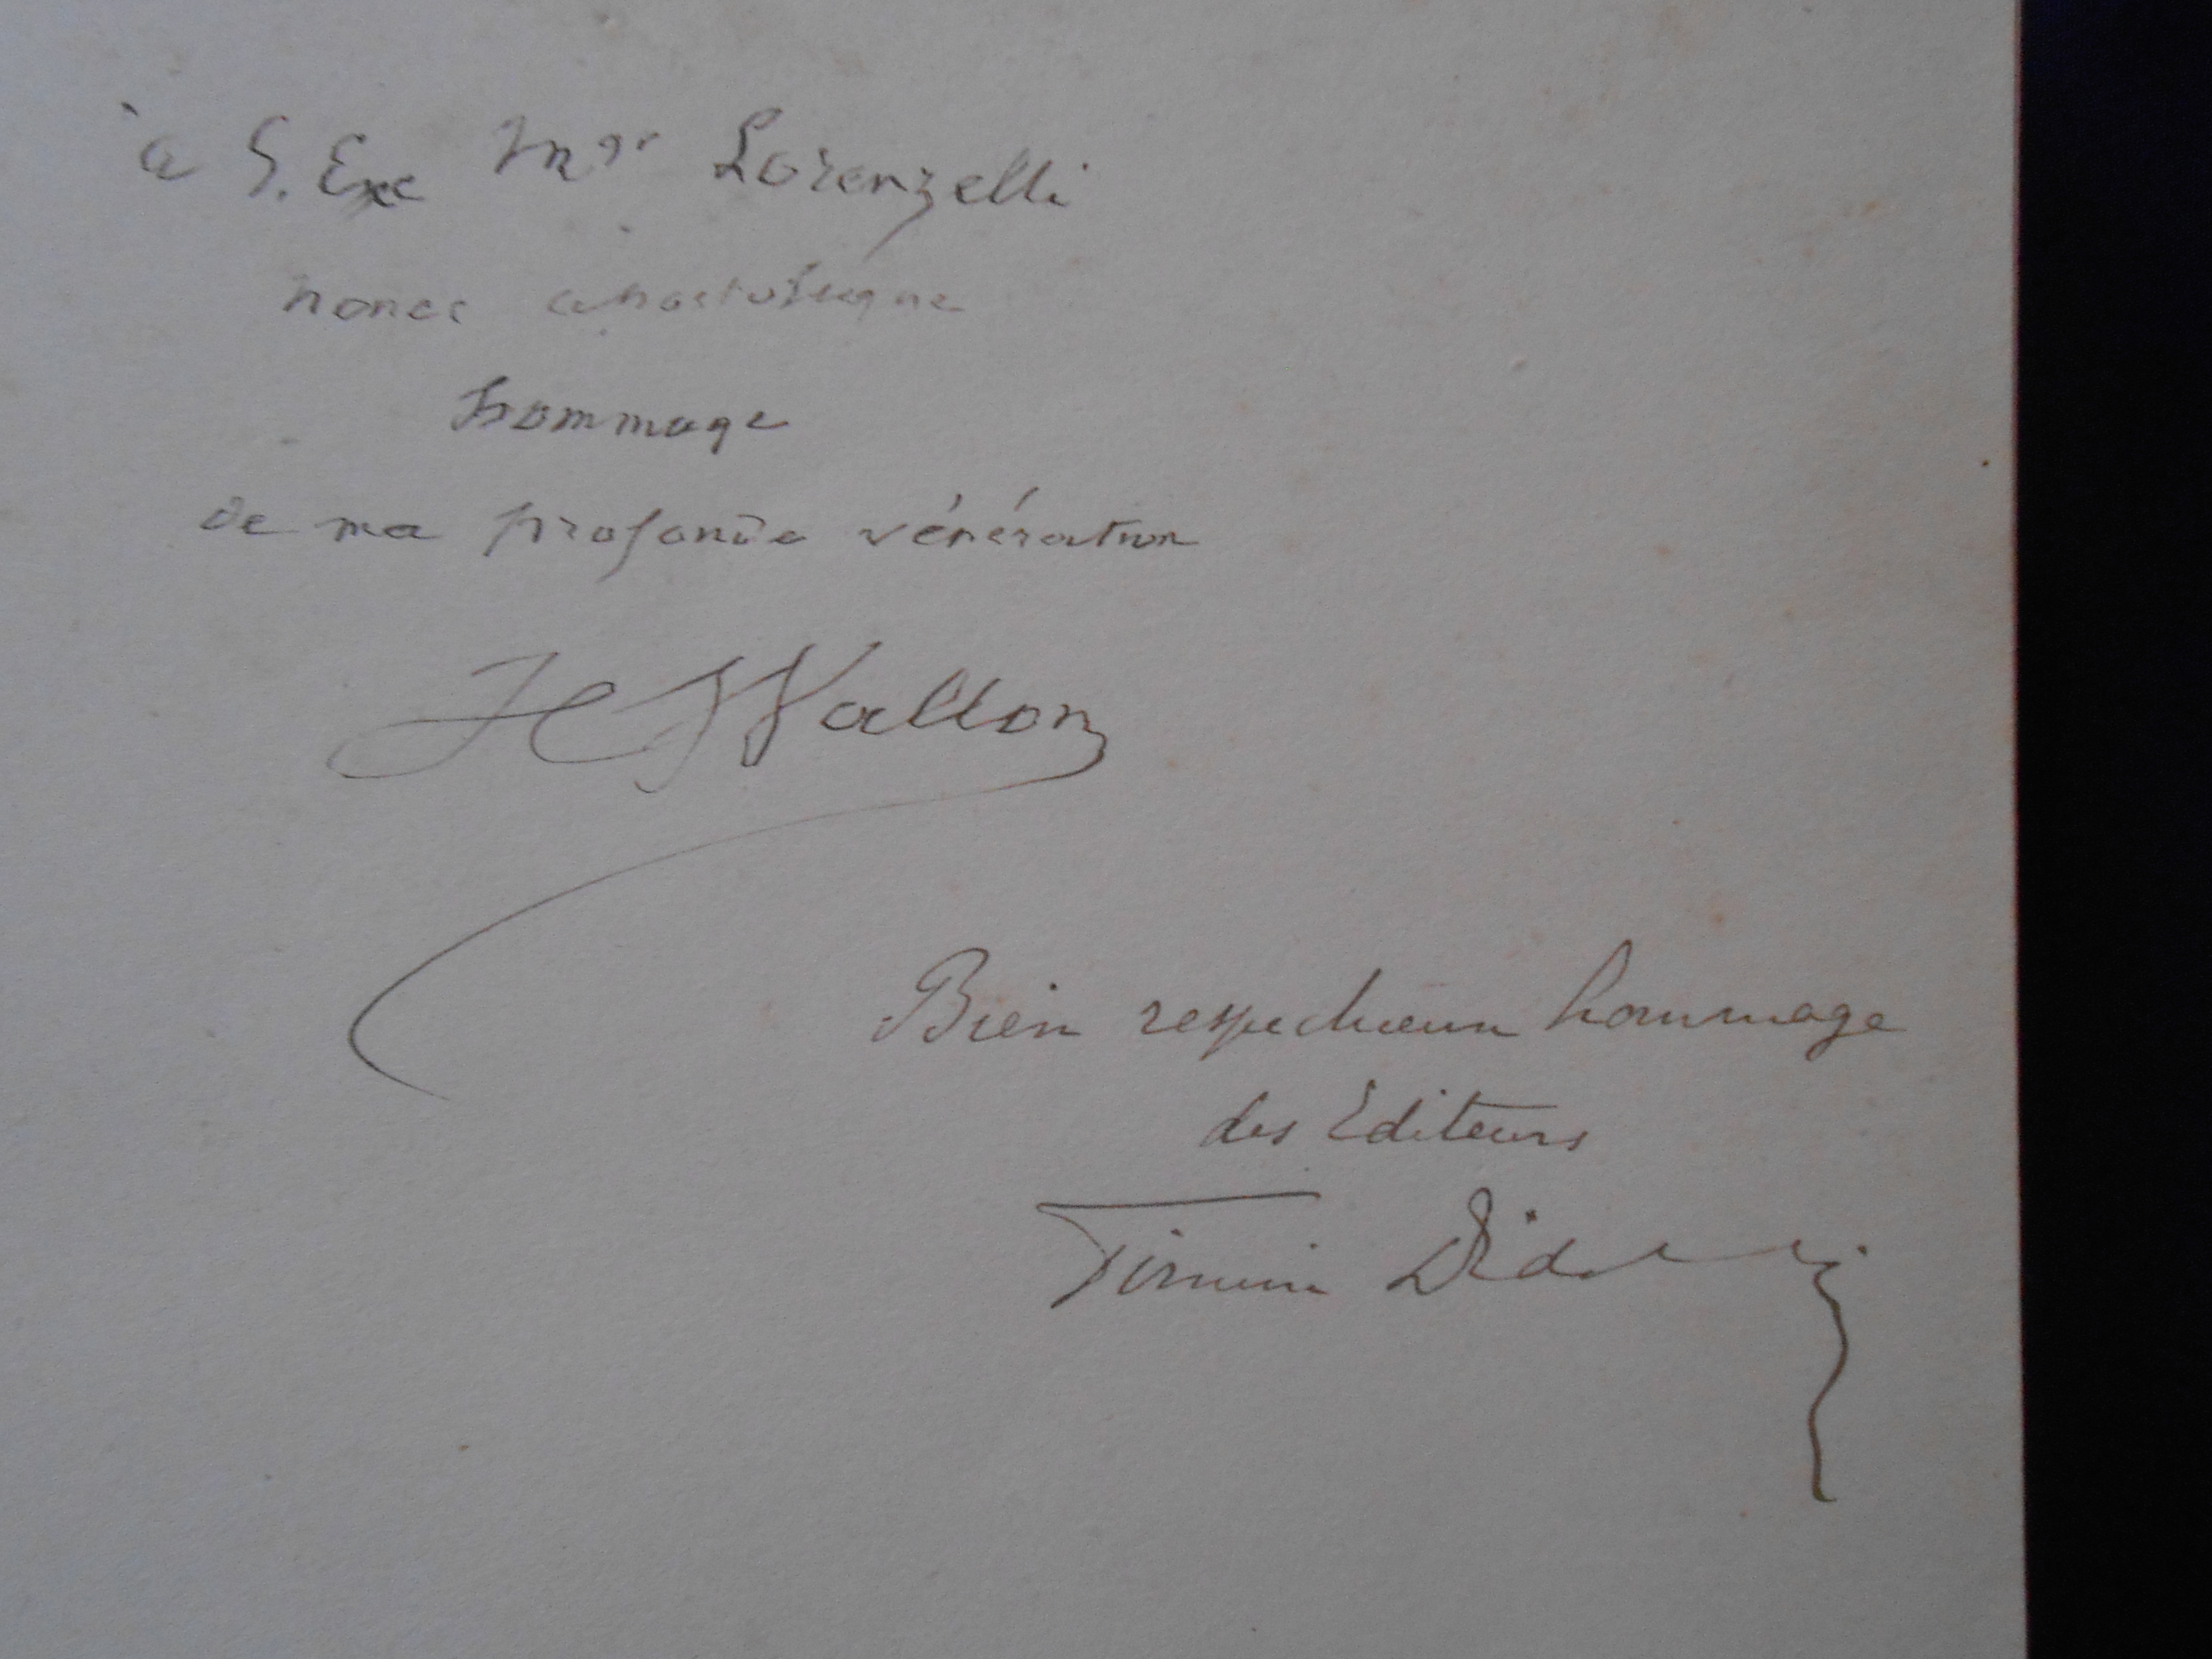 à S. Exc Mgr Lorenzelli
nonce apostolique
hommage
de ma profonde vénération
H Wallon
Bien respectueux hommage
des Editeurs
Firmin Didot